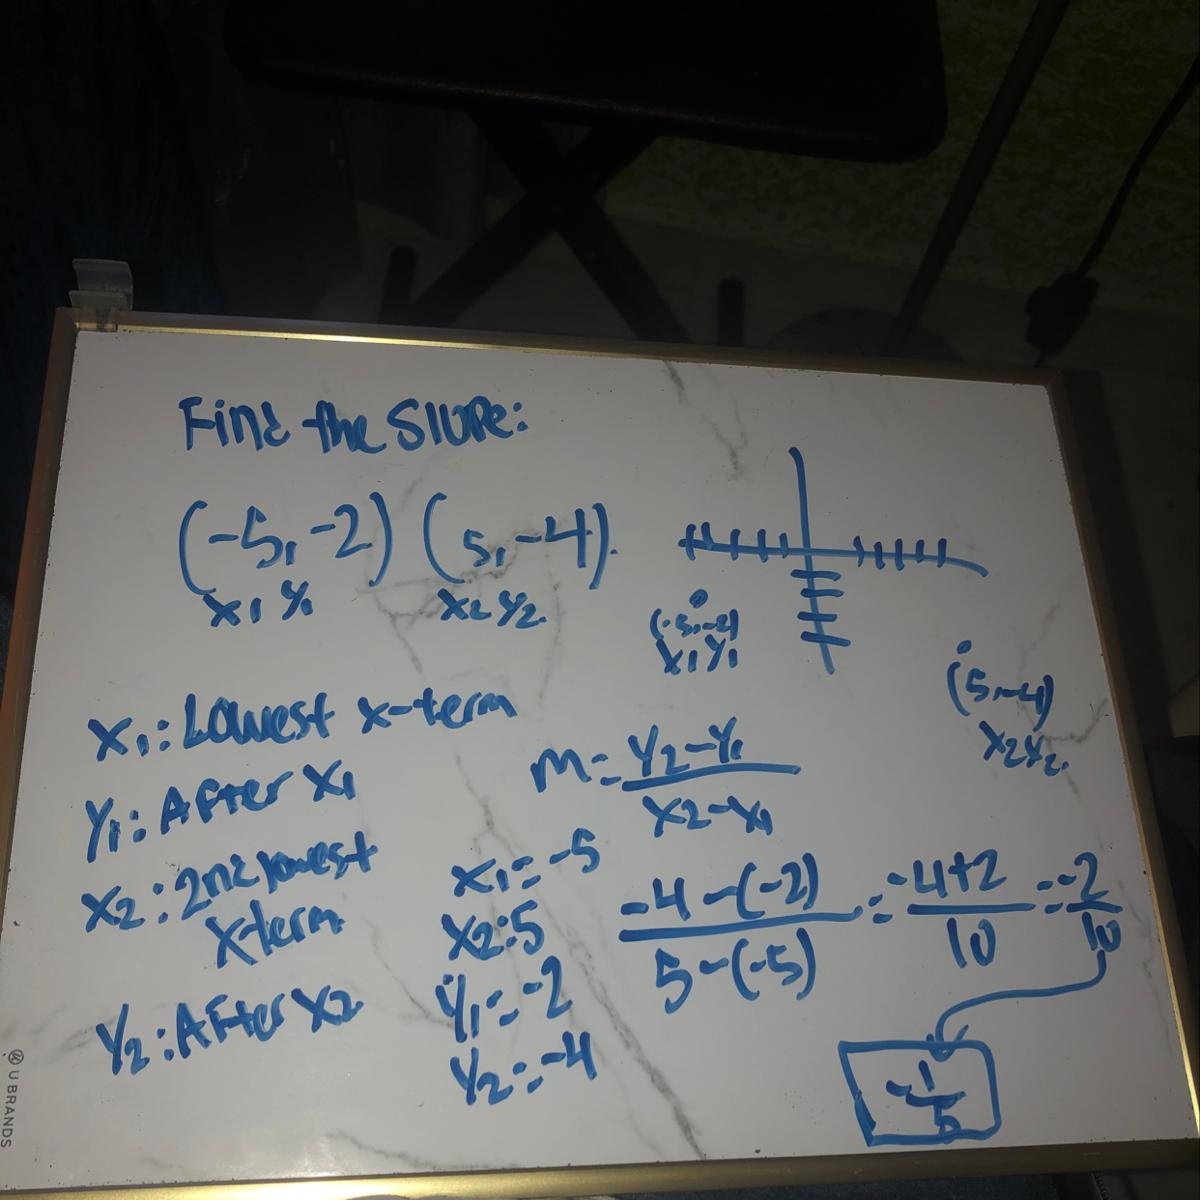 Find the Slope:
(-5,-2) (5,-4).
x1 y1 x2 y2
(-5,-2)
x1 y1
(5,-4)
x2 y2.
x1: Lowest x-term
y1: After x1
x2: 2nd lowest
x-term
y2: After x2
m = y2-y1
x2-x1
x1 = -5
x2 = 5
y1 = -2
y2 = -4
-4-(-2) = -4+2 = -2
5-(-5) 10 10
-1/5
U BRANDS